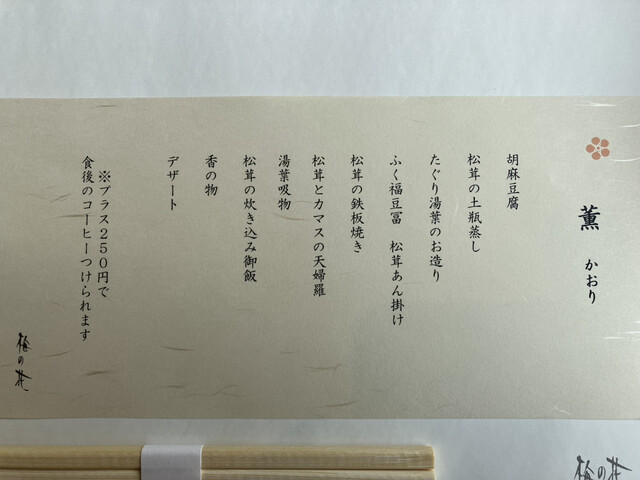 薫　かおり
胡麻豆腐
松茸の土瓶蒸し
たぐり湯葉のお造り
ふく福豆冨　松茸あん掛け
松茸の鉄板焼き
松茸とカマスの天婦羅
湯葉吸物
松茸の炊き込み御飯
香の物
デザート
※プラス２５０円で
食後のコーヒーつけられます
梅の花
梅の花